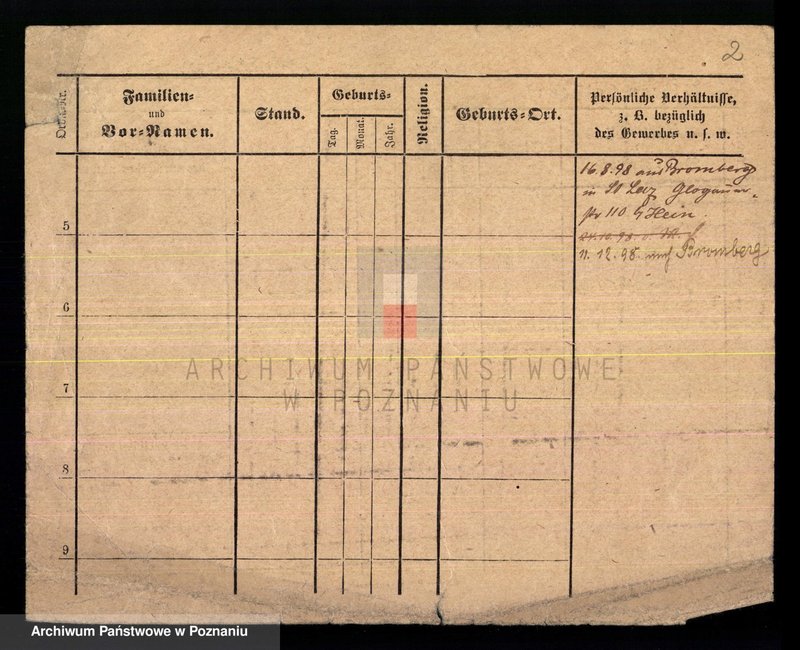 2
Ordn.-Nr.
Familien-
und
Vor-Namen.
Stand.
Geburts-
Tag.
Monat.
Jahr.
Religion.
Geburts-Ort.
Persönliche Verhältnisse,
z. B. bezüglich
des Gewerbes u. s. w.
16.8.98 aus Bromberg
in St Laz Glogauer-
str 110 b Hein.
24.10.98
11.12.98. nach Bromberg
5
6
7
8
9
ARCHIWUM PAŃSTWOWE
W POZNANIU
Archiwum Państwowe w Poznaniu